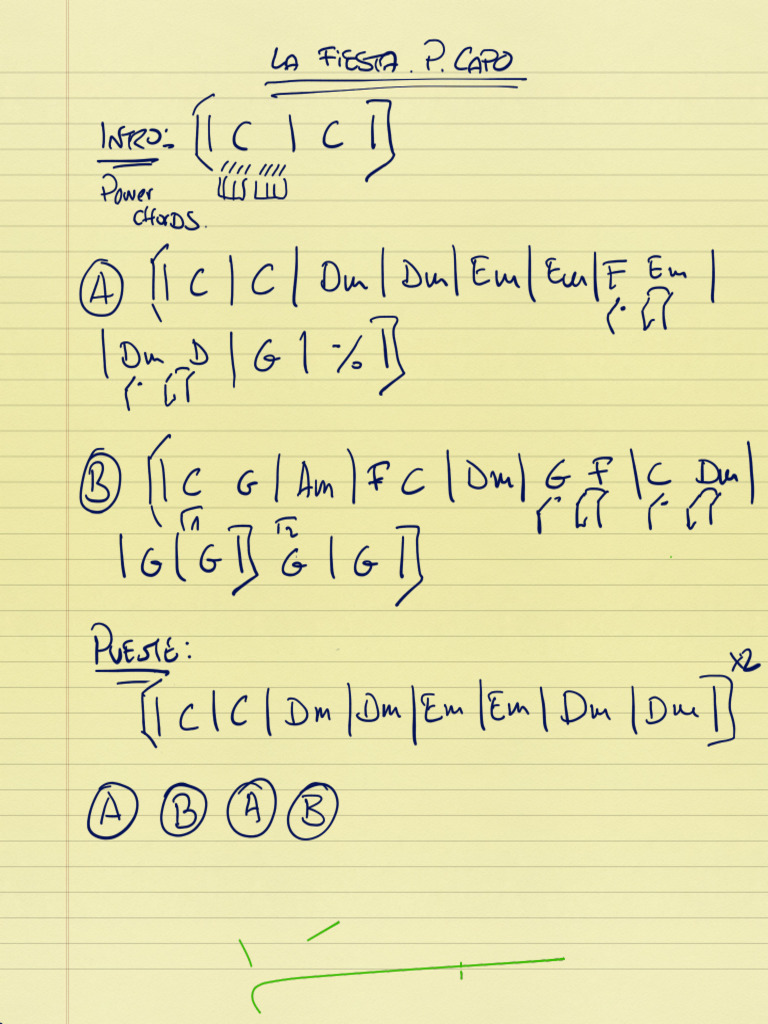 LA FIESTA. P. CAPO
INTRO: [|| C | C ||]
Power
CHORDS.
A [|| C | C | Dm | Dm | Em | Em | F Em |
| Dm D | G | % ||]
B [|| C G | Am | F C | Dm | G F | C Dm |
1 2
| G | G ||] G | G ||]
PUENTE:
x2
[|| C | C | Dm | Dm | Em | Em | Dm | Dm ||]
A B A B